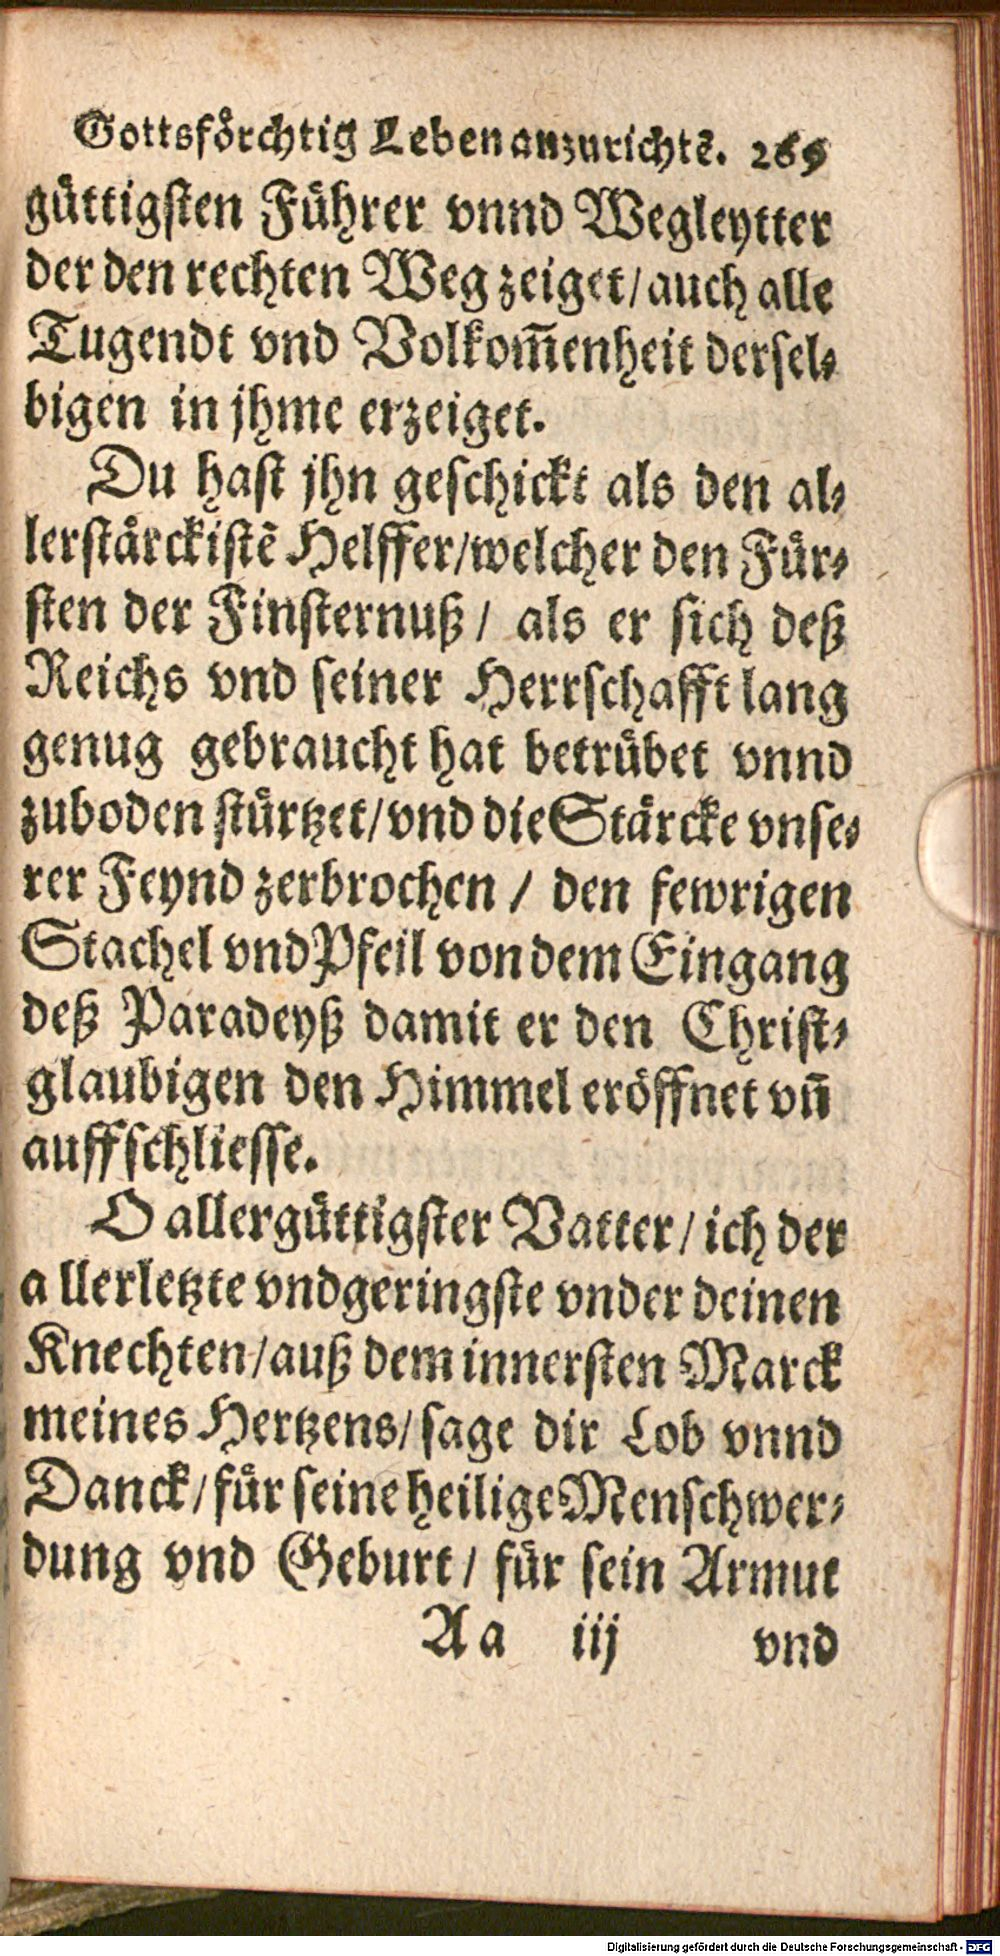 Gottsförchtig Leben anzurichtẽ. 269
güttigsten Führer vnnd Wegleytter
der den rechten Weg zeiget/ auch alle
Tugendt vnd Volkom̃enheit dersel-
bigen in jhme erzeiget.
Du hast jhn geschickt als den al-
lerstärckistẽ Helffer/welcher den Für-
sten der Finsternuß/ als er sich deß
Reichs vnd seiner Herrschafft lang
genug gebraucht hat betrübet vnnd
zuboden stürtzet/vnd die Stärcke vnse-
rer Feynd zerbrochen / den fewrigen
Stachel vnd Pfeil von dem Eingang
deß Paradeyß damit er den Christ-
glaubigen den Himmel eröffnet vñ
auffschliesse.
O allergüttigster Vatter/ ich der
allerletzte vnd geringste vnder deinen
Knechten/auß dem innersten Marck
meines Hertzens/ sage dir Lob vnnd
Danck/ für seine heilige Menschwer-
dung vnd Geburt/ für sein Armut
Aa iij vnd
Digitalisierung gefördert durch die Deutsche Forschungsgemeinschaft - DFG